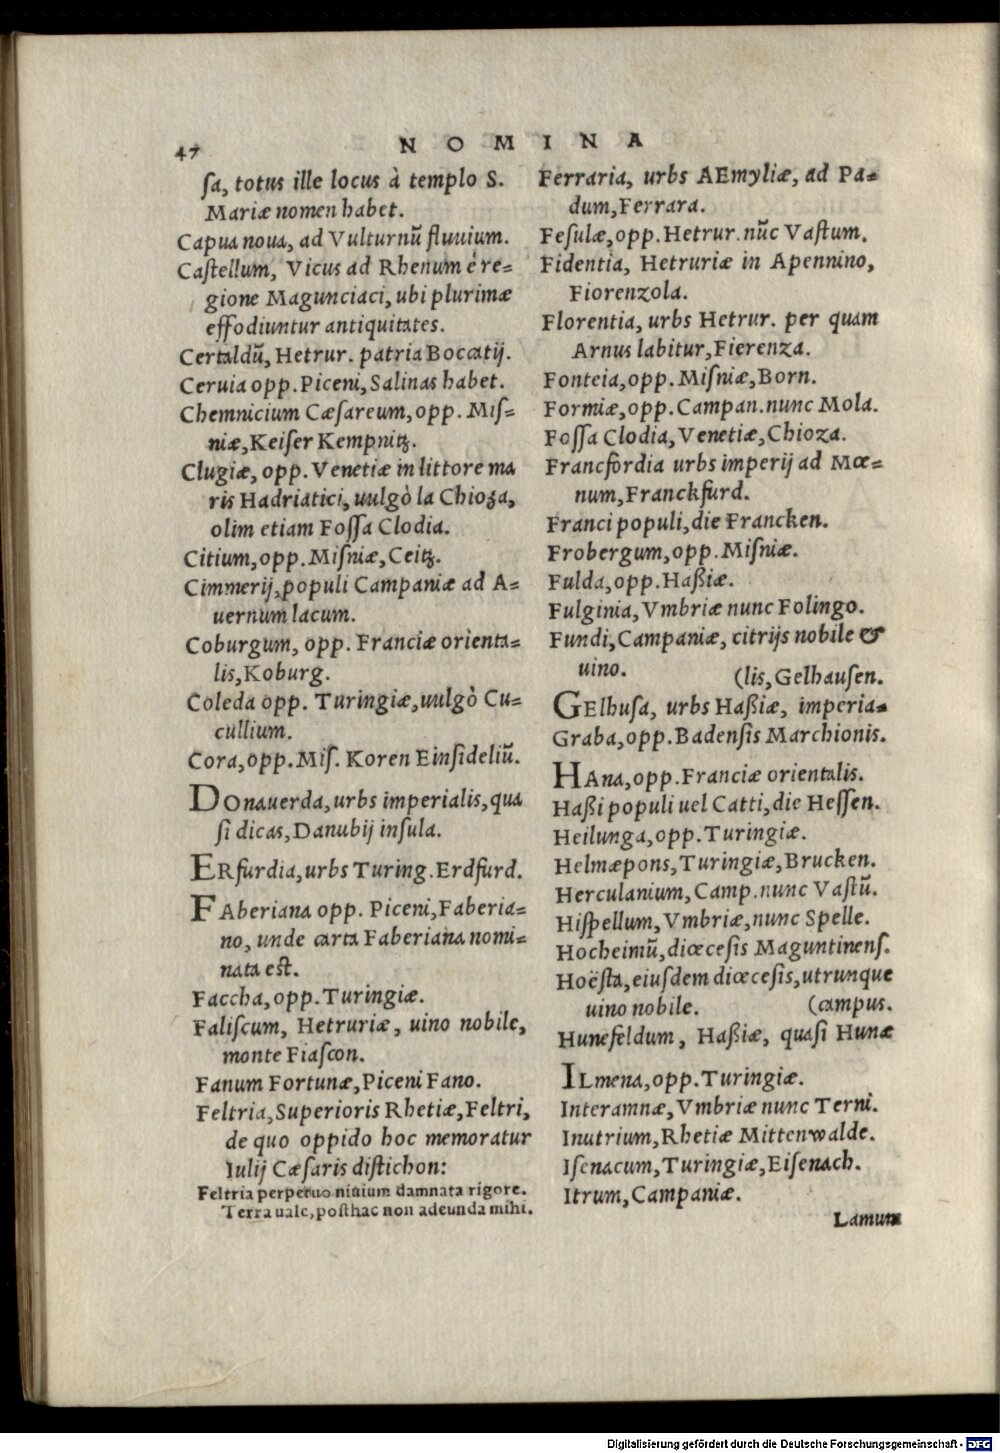 47 NOMINA
ſa, totus ille locus à templo S.
Mariæ nomen habet.
Capua noua, ad Vulturnū fluuium.
Caſtellum, Vicus ad Rhenum è re=
gione Magunciaci, ubi plurimæ
effodiuntur antiquitates.
Certaldū, Hetrur. patria Bocatij.
Ceruia opp. Piceni, Salinas habet.
Chemnicium Cæſareum, opp. Miſ=
niæ, Keiſer Kempnitz.
Clugiæ, opp. Venetiæ in littore ma
ris Hadriatici, uulgò la Chioza,
olim etiam Foſſa Clodia.
Citium, opp. Miſniæ, Ceitz.
Cimmerij, populi Campaniæ ad A=
uernum lacum.
Coburgum, opp. Franciæ orienta=
lis, Koburg.
Coleda opp. Turingiæ, uulgò Cu=
cullium.
Cora, opp. Miſ. Koren Einſideliū.
DOnauerda, urbs imperialis, qua
ſi dicas, Danubij inſula.
ERfurdia, urbs Turing. Erdfurd.
FAberiana opp. Piceni, Faberia=
no, unde carta Faberiana nomi=
nata eſt.
Faccha, opp. Turingiæ.
Faliſcum, Hetruriæ, uino nobile,
monte Fiaſcon.
Fanum Fortunæ, Piceni Fano.
Feltria, Superioris Rhetiæ, Feltri,
de quo oppido hoc memoratur
Iulij Cæſaris diſtichon:
Feltria perpetuo niuium damnata rigore.
Terra uale, poſthac non adeunda mihi.
Ferraria, urbs AEmyliæ, ad Pa=
dum, Ferrara.
Feſulæ, opp. Hetrur. nūc Vaſtum.
Fidentia, Hetruriæ in Apennino,
Fiorenzola.
Florentia, urbs Hetrur. per quam
Arnus labitur, Fierenza.
Fonteia, opp. Miſniæ, Born.
Formiæ, opp. Campan. nunc Mola.
Foſſa Clodia, Venetiæ, Chioza.
Francfordia urbs imperij ad Mœ=
num, Franckfurd.
Franci populi, die Francken.
Frobergum, opp. Miſniæ.
Fulda, opp. Haßiæ.
Fulginia, Vmbriæ nunc Folingo.
Fundi, Campaniæ, citrijs nobile &
uino. (lis, Gelhauſen.
GElhuſa, urbs Haßiæ, imperia=
Graba, opp. Badenſis Marchionis.
HAna, opp. Franciæ orientalis.
Haßi populi uel Catti, die Heſſen.
Heilunga, opp. Turingiæ.
Helmæpons, Turingiæ, Brucken.
Herculanium, Camp. nunc Vaſtū.
Hiſpellum, Vmbriæ, nunc Spelle.
Hocheimū, diœceſis Maguntinenſ.
Hoëſta, eiuſdem diœceſis, utrunque
uino nobile. (campus.
Hunefeldum, Haßiæ, quaſi Hunæ
ILmena, opp. Turingiæ.
Interamnæ, Vmbriæ nunc Terni.
Inutrium, Rhetiæ Mittenwalde.
Iſenacum, Turingiæ, Eiſenach.
Itrum, Campaniæ.
Lamum
Digitalisierung gefördert durch die Deutsche Forschungsgemeinschaft - DFG